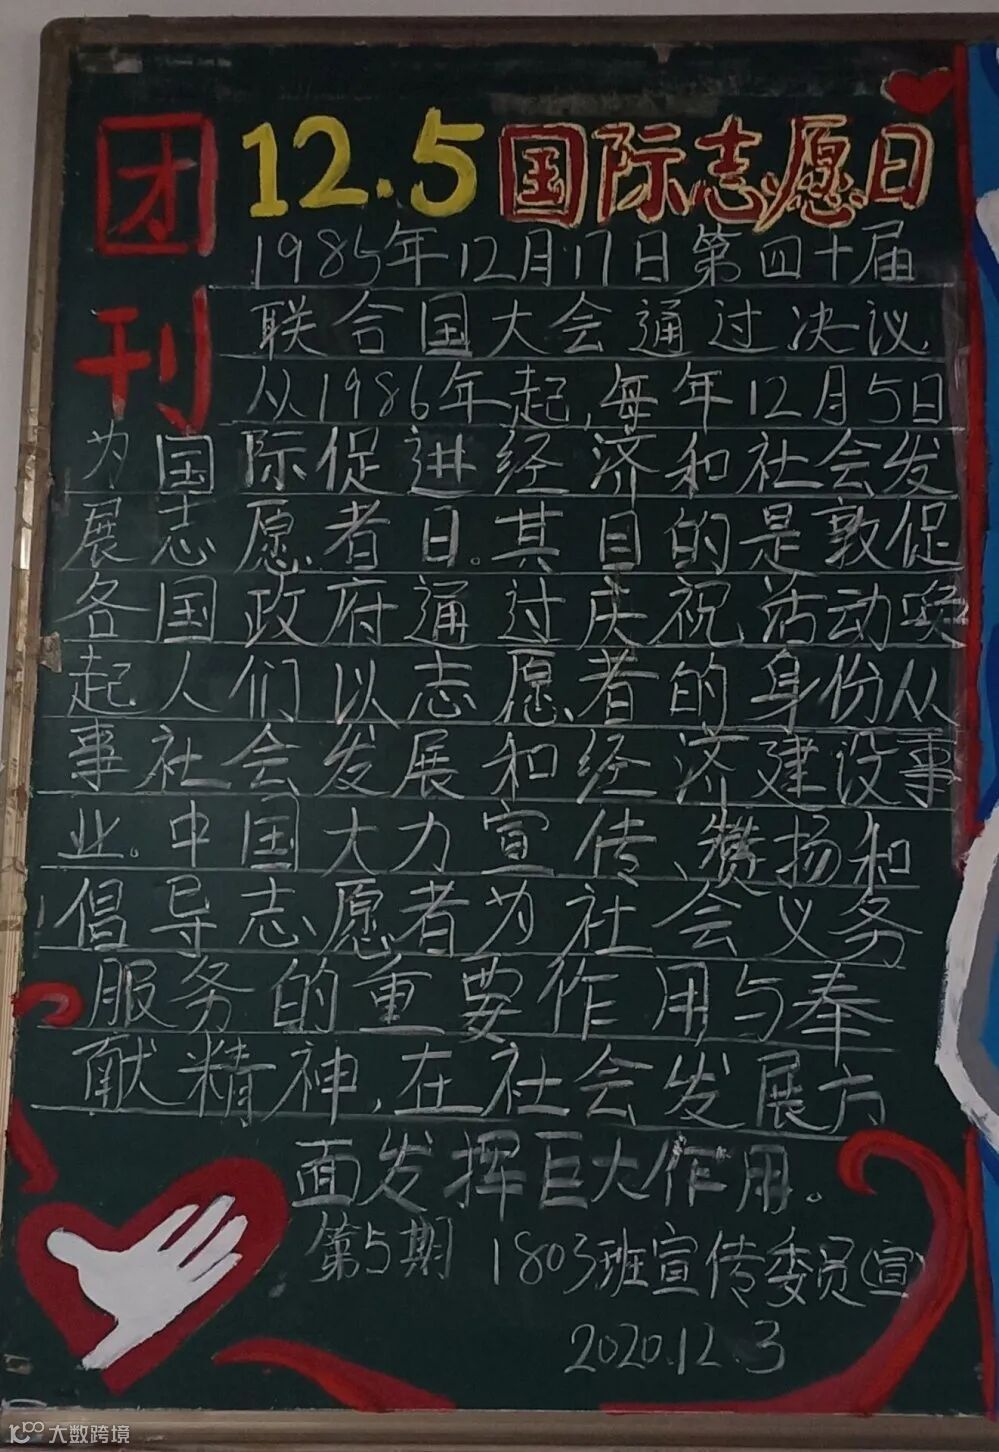 团刊
12.5国际志愿日
1985年12月17日第四十届
联合国大会通过决议
从1986年起,每年12月5日
为国际促进经济和社会发
展志愿者日。其目的是敦促
各国政府通过庆祝活动唤
起人们以志愿者的身份从
事社会发展和经济建设事
业。中国大力宣传、赞扬和
倡导志愿者为社会义务
服务的重要作用与奉
献精神,在社会发展方
面发挥巨大作用。
第5期 1803班宣传委员(宣)
2020.12.3
大数跨境